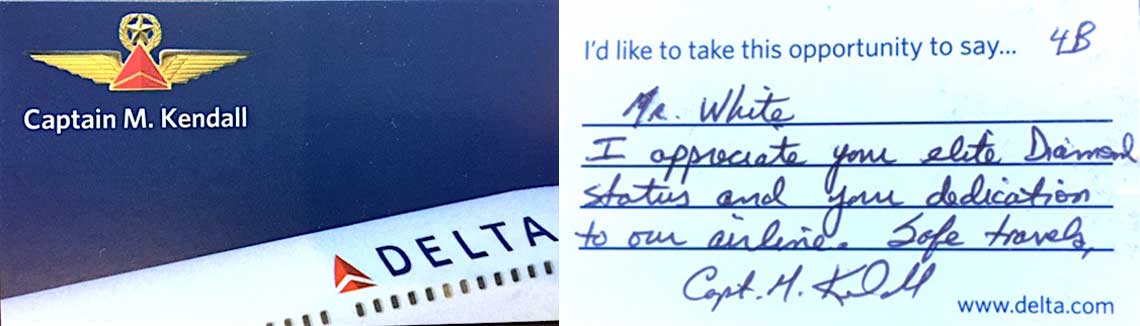 Captain M. Kendall
DELTA
I'd like to take this opportunity to say... 4B
Mr. White
I appreciate your elite Diamond
status and your dedication
to our airline. Safe travels,
Capt. M. Kendall
www.delta.com